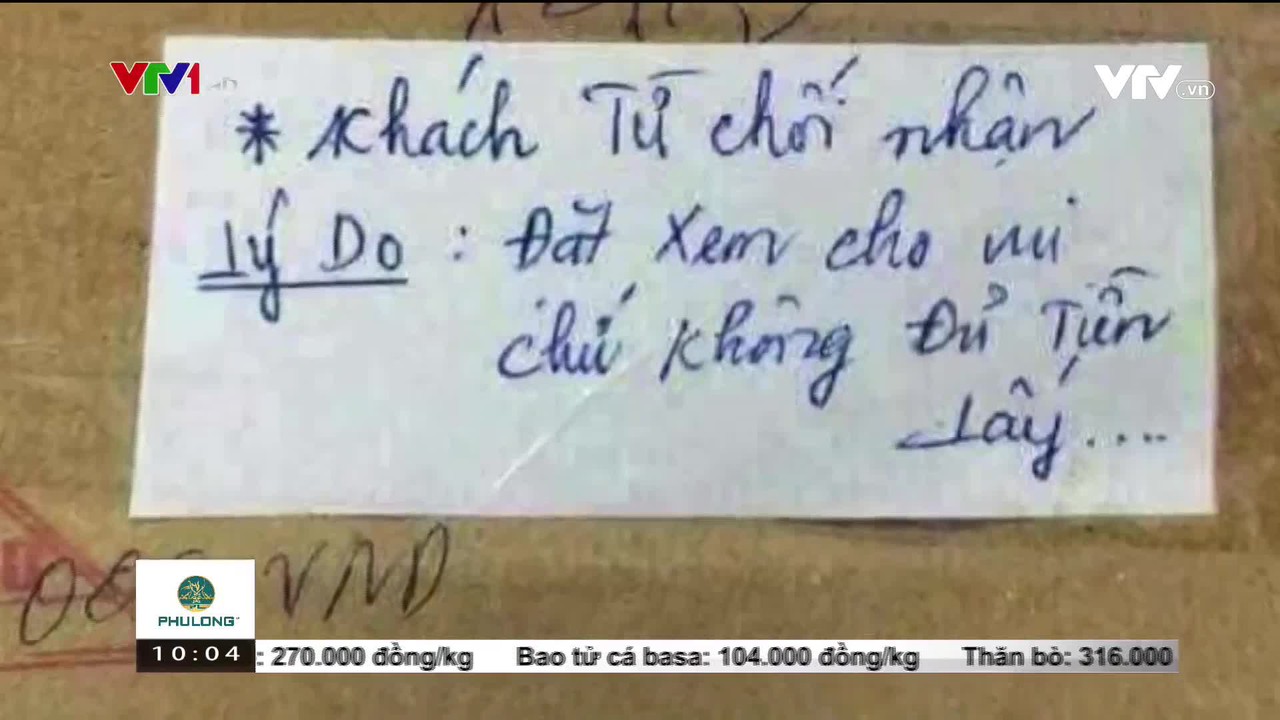 VTV1
VTV.vn
* Khách Từ chối nhận
Lý Do : Đặt xem cho vui
chứ không Đủ Tiền
Lấy....
VND
PHULONG
10:04 : 270.000 đồng/kg Bao tử cá basa: 104.000 đồng/kg Thăn bò: 316.000